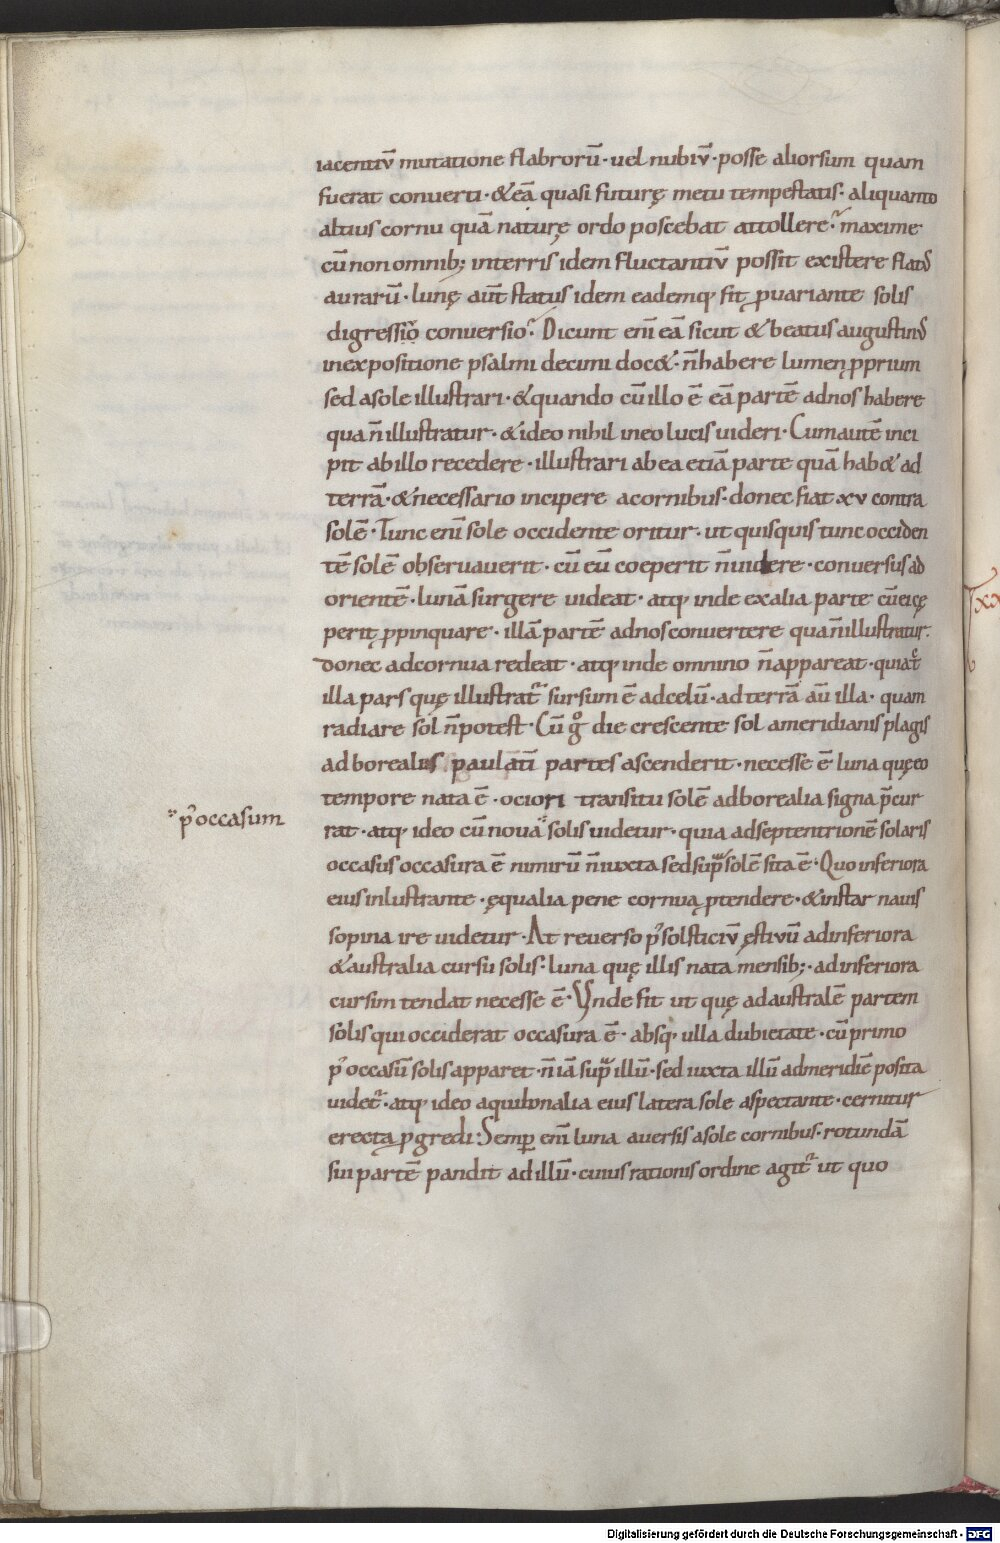 iacentiū mutatione flabrorū · uel nubiū · posse aliorsum quam
fuerat conuerti · & eā quasi futurę metu tempestatis · aliquanto
altius cornu quā naturę ordo poscebat attollere · maxime
cū non omnib; in terris idem fluctantiū possit existere flatus
aurarū · lunę aūt status idem eademq· fit ꝑ uariante solis
digressiō conuersio · Dicunt enī eā sicut & beatus augustinus
in expositione psalmi decimi doc& · n̄ habere lumen ꝓprium
sed a sole illustrari · & quando cū illo ē eā partē ad nos habere
qua n̄ illustratur · & ideo nihil in eo lucis uideri · Cum autē inci
pit ab illo recedere · illustrari ab ea etiā parte quā hab& ad
terrā · & necessario incipere a cornibus · donec fiat xv contra
solē · Tunc enī sole occidente oritur · ut quisquis tunc occiden
tē solē obseruauerit · cū eū coeperit n̄ uidere · conuersus ad
orientē · lunā surgere uideat · atq· inde ex alia parte cū ei cę
perit ꝓpinquare · illā partē ad nos conuertere qua n̄ illustratur ·
donec ad cornua redeat · atq· inde omnino n̄ appareat · quia t̄c
illa pars quę illustrat᷑ sursum ē ad celū · ad terrā aū illa · quam
radiare sol n̄ potest · Cū gͦ die crescente sol a meridianis plagis
ad borealus paulatī partes ascenderit · necesse ē luna quę eo
tempore nata ē · ociori transitu solē ad borealia signa p̄cur
rat · atq· ideo cū noua solis uidetur · quia ad septentrionē solaris
p᷒ occasum
occasus occasura ē nimirū n̄ iuxta sed supra solē sita ē · Quo inferiora
eius inlustrante · ęqualia pene cornua ꝓtendere · & instar nauis
sopina ire uidetur · At reuerso p᷒ solsticiū ęstiuū ad inferiora
& australia cursu solis · luna quę illis nata mensib; · ad inferiora
cursim tendat necesse ē · Unde fit ut quę ad australē partem
solis qui occiderat occasura ē · absq· ulla dubietate · cū primo
p᷒ occasū solis apparet · n̄ iā supra illū · sed iuxta illū ad meridiē posita
uidet᷑ · atq· ideo aquilonalia eius latera sole aspectante · cernitur
erecta ꝓgredi : Semꝑ enī luna auersis a sole cornibus · rotundā
sui partē pandit ad illū · cuius rationis ordine agit᷑ ut quo
Digitalisierung gefördert durch die Deutsche Forschungsgemeinschaft - DFG